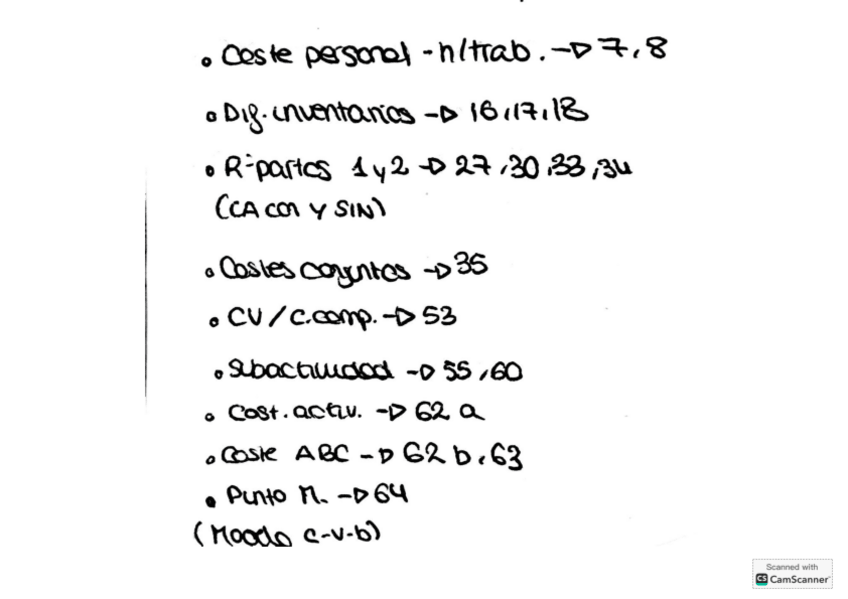 • Coste personal - h/trab. → 7, 8
• Dif. inventarios → 16, 17, 18
• R-partos 1 y 2 → 27, 30, 33, 34
(CA con y SIN)
• Costes conjuntos → 35
• CV / C. comp. → 53
• Subactividad → 55, 60
• Cost. activ. → 62 a
• Coste ABC → 62 b, 63
• Punto M. → 64
(Modelo c-v-b)
Scanned with
CS CamScanner